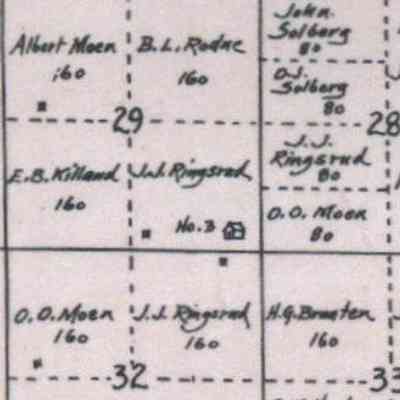 Albert Moen
160
B. L. Rodne
160
John
Solberg
80
O.J.
Solberg
80
29
28
E.B. Killand
160
J.J. Ringsrud
No. 3
J.J.
Ringsrud
80
O.O. Moen
80
O.O. Moen
160
J.J. Ringsrud
160
H.G. Braaten
160
32
33